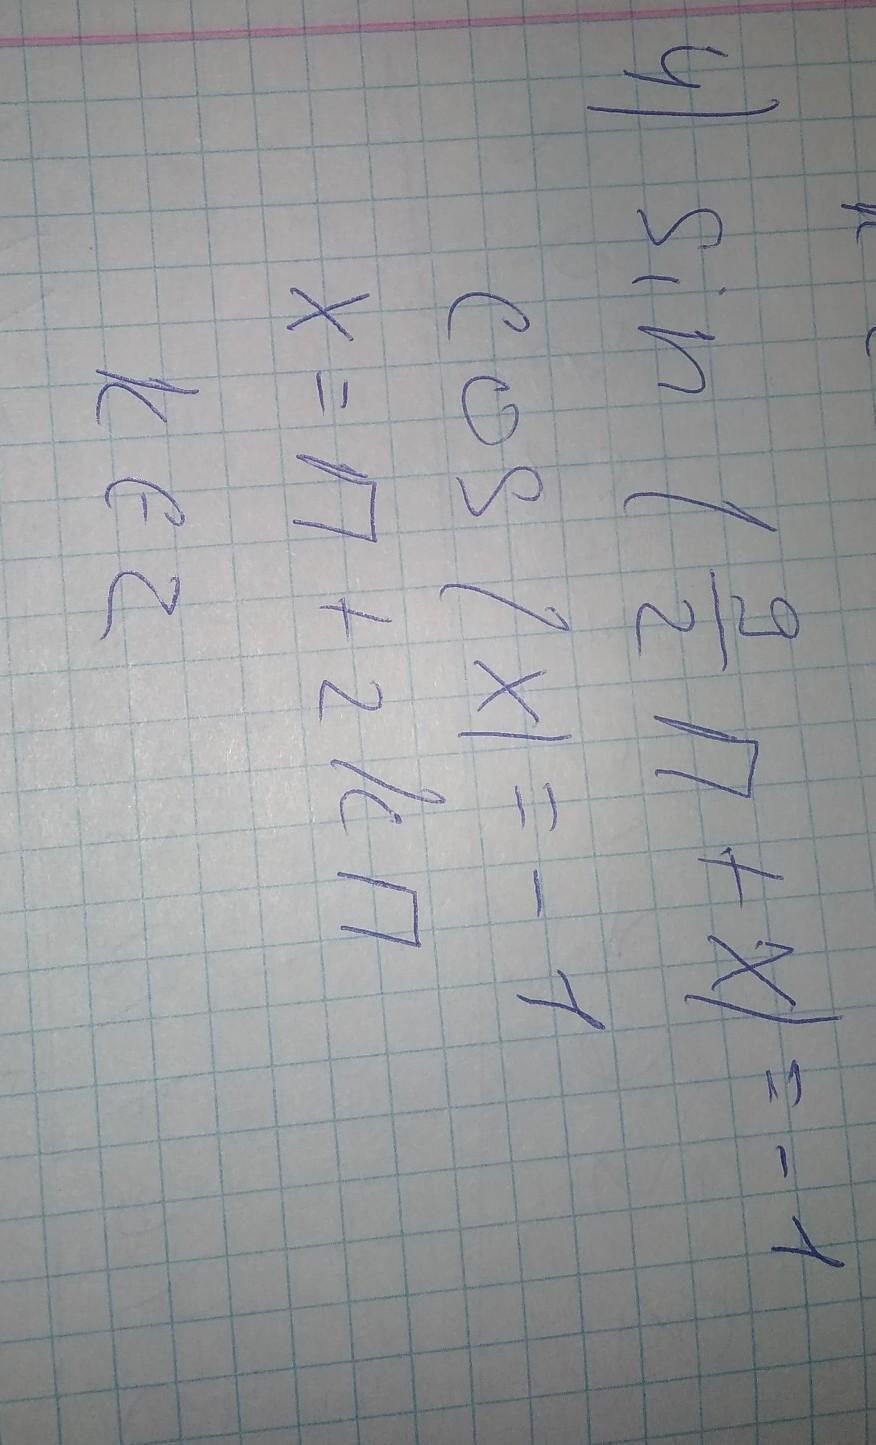 4) sin (9/2 П + x) = -1
cos (x) = -1
x = П + 2kП
k ∈ Z